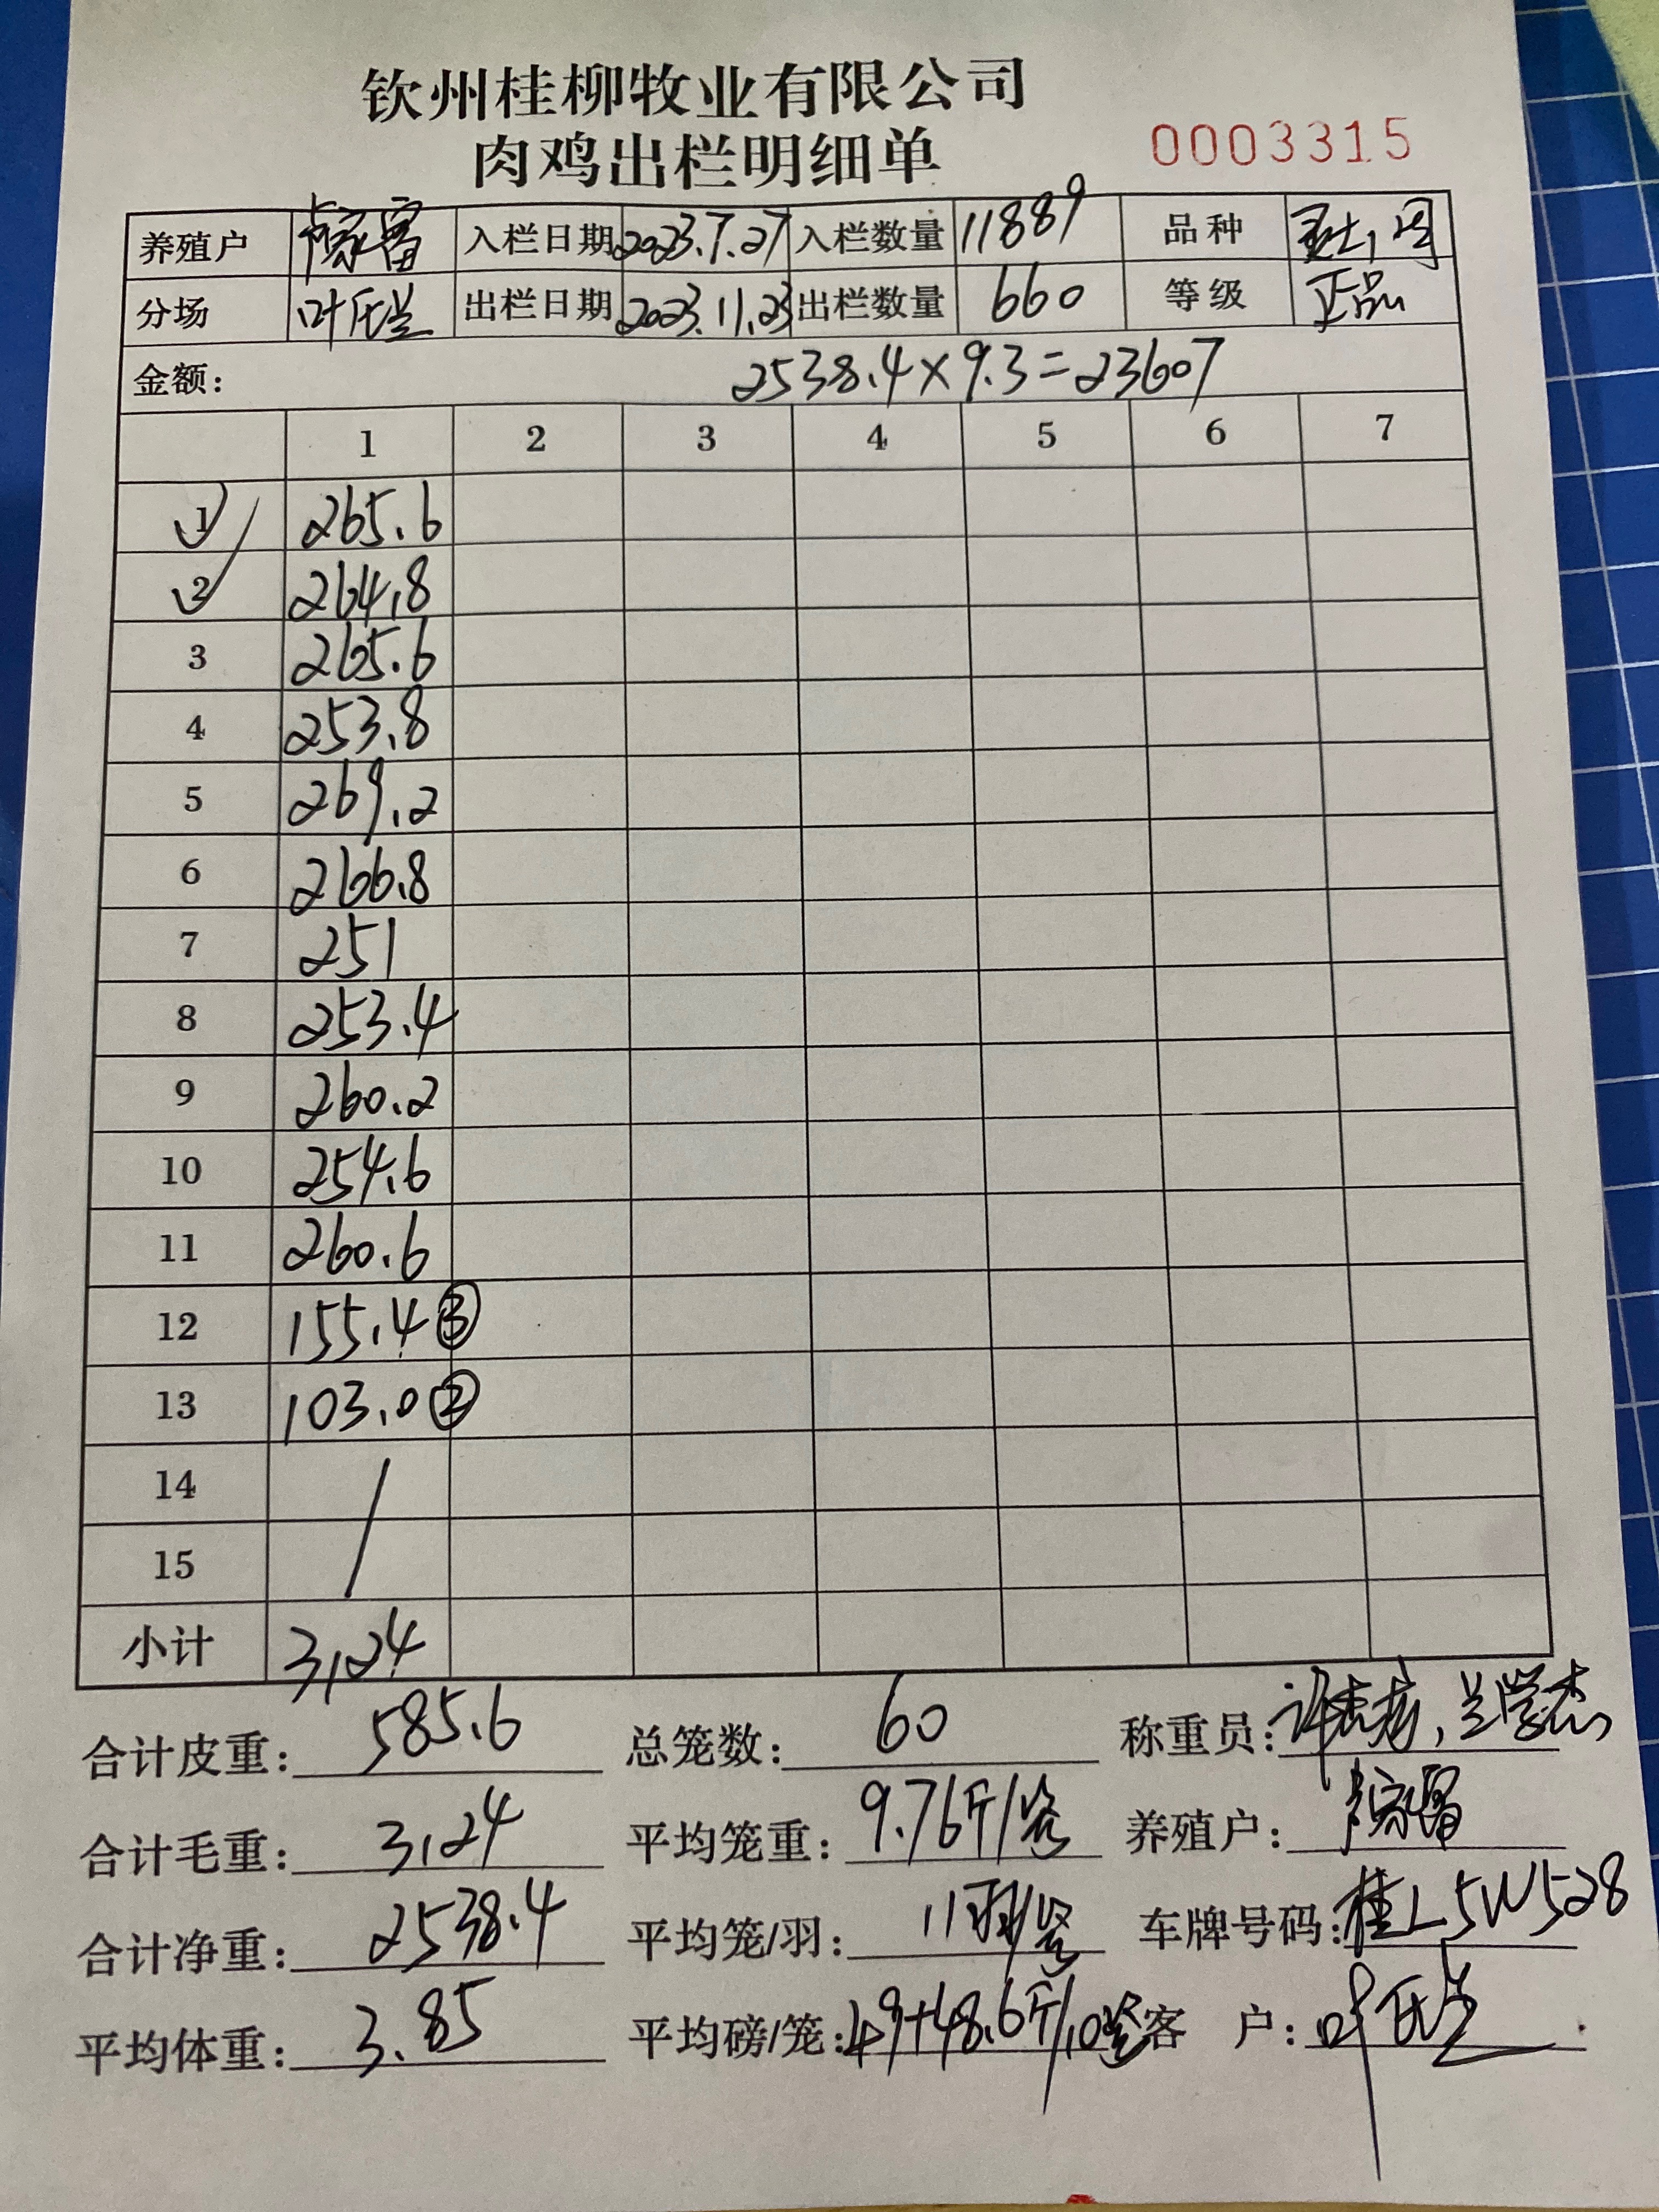 钦州桂柳牧业有限公司
肉鸡出栏明细单 0003315
养殖户 入栏日期 2023.7.27 入栏数量 11889 品种
分场 叶氏兰 出栏日期 2023.11.23 出栏数量 660 等级 正品
金额: 2538.4×9.3=23607
1 2 3 4 5 6 7
1 265.6
2 264.8
3 265.6
4 253.8
5 269.2
6 266.8
7 251
8 253.4
9 260.2
10 254.6
11 260.6
12 155.4 ③
13 103.0 ②
14
15
小计 3124
合计皮重: 585.6 总笼数: 60 称重员:
合计毛重: 3124 平均笼重: 9.76斤/笼 养殖户:
合计净重: 2538.4 平均笼/羽: 11羽/笼 车牌号码: 桂L5W528
平均体重: 3.85 平均磅/笼: 49+48.6斤/10笼 客 户: 叶氏兰